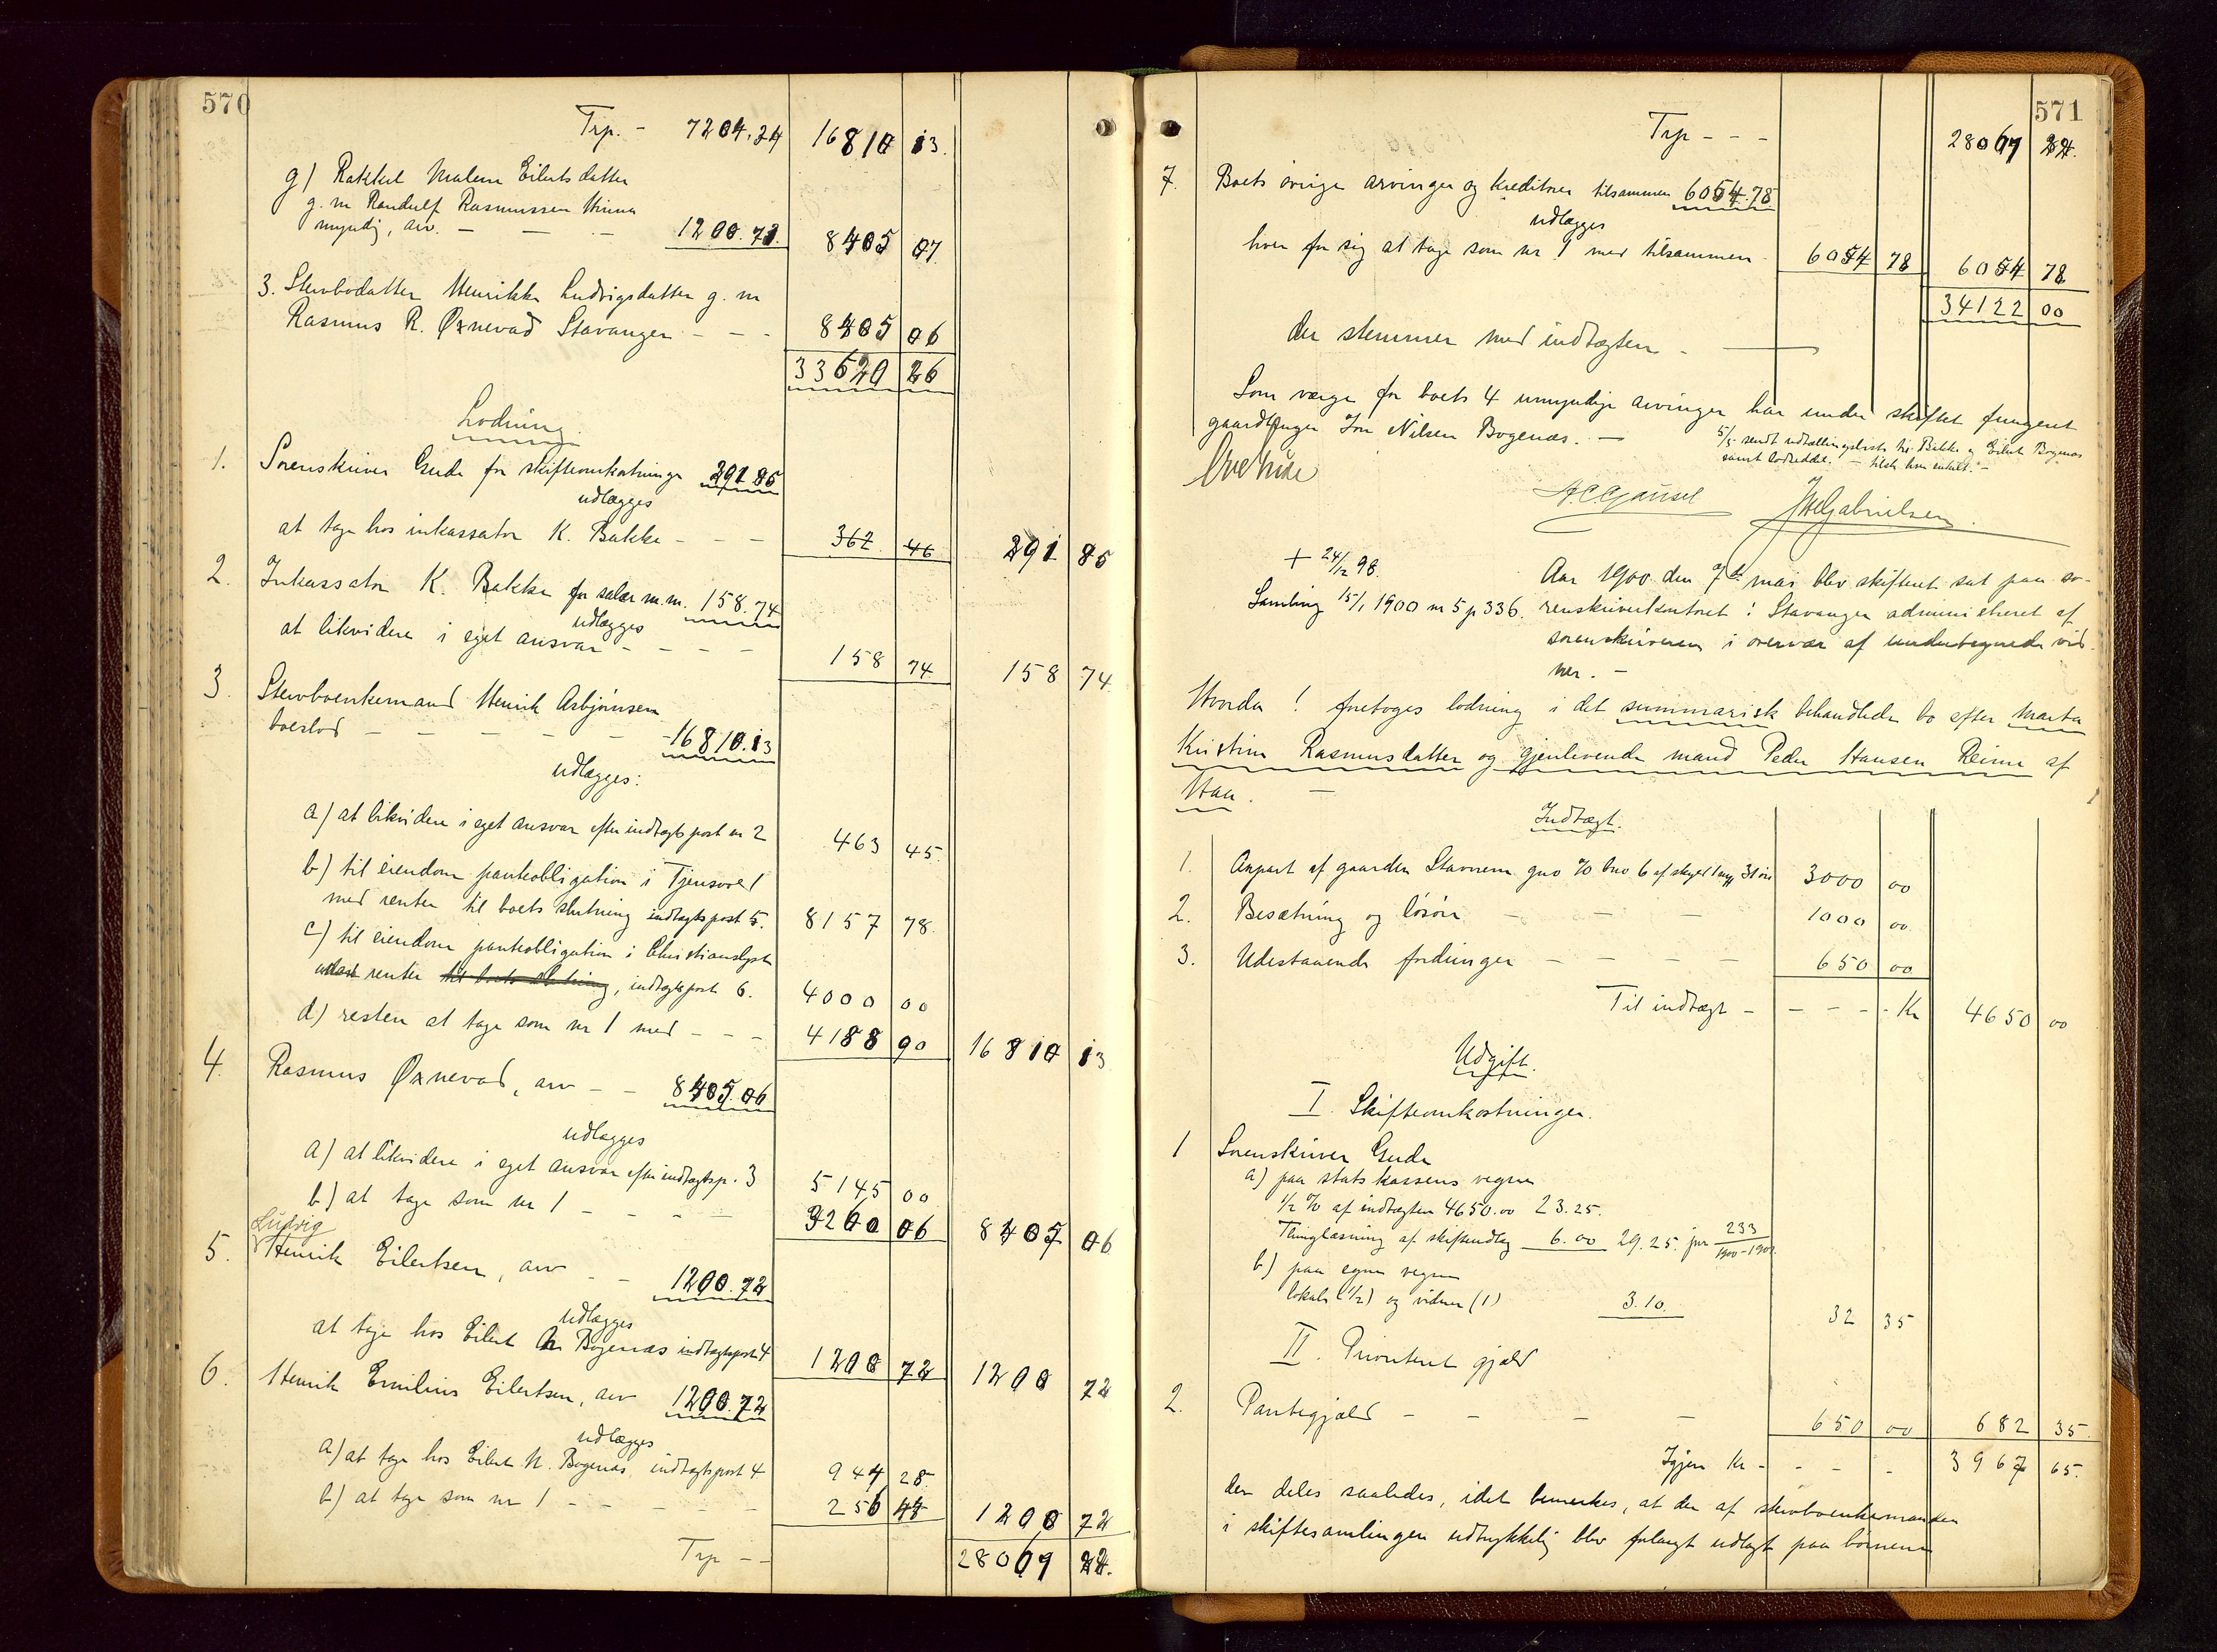 570
Trp. - 7204.34 16810 13.
g) Rakkel Malene Eilertsdatter
g. m Randulf Rasmussen Hinna
myndig, arv. - - - 1200.73. 8405 07
3. Stervbodatter Henrikke Ludvigsdatter g. m
Rasmus R. Øxnevad Stavanger - - - 8405 06
33620 26
Lodning.
1. Sorenskriver Gude for skifteomkostninger 291 85
udlægges
at tage hos inkassator K. Bakke - - - 362 46 291 85
2. Inkassator K. Bakke for salær m.m. 158.74
udlægges
at likvidere i eget ansvar - - - - 158 74 158 74
3. Stervboenkemand Henrik Asbjørnsen
boeslod - - - - - -16810.13
udlægges:
a) at likvidere i eget ansvar efter indtægtspost nr 2 463 45.
b) til eiendom panteobligation i Tjensvol
med renter til boets slutning indtægtspost 5. 8157 78.
c) til eiendom panteobligation i Christianslyst
uden renter til boets slutning, indtægtspost 6. 4000 00
d) resten at tage som nr 1 med - - - 4188 90 16810 13
4. Rasmus Øxnevad, arv - - 8405.06
udlægges
a) at likvidere i eget ansvar efter indtægtsp. 3 5145 00
b) at tage som nr 1 - - - - 3260 06 8405 06
Ludvig
5. Henrik Eilertsen, arv - - 1200.72
udlægges
at tage hos Eilert N. Bogenæs indtægtspost 4 1200 72 1200 72
6. Henrik Emilius Eilertsen, arv 1200.72
udlægges
a) at tage hos Eilert N. Bogenæs, indtægtspost 4 944 28
b) at tage som nr 1 - - - - - 256 44 1200 72
Trp - - 28067 22.
571
Trp - - - 28067 22.
7. Boets øvrige arvinger og kreditorer tilsammen 6054.78.
udlægges
hver for sig at tage som nr 1 med tilsammen - 6054 78 6054 78
34122 00
der stemmer med indtægten -
Som værge for boets 4 umyndige arvinger har under skiftet fungeret
gaardbruger Jon Nilsen Bogenæs. -
5/5 sendt udtællingsliste til Bakke og Eilert Bogenæs
samt lodseddel. - tilst. hver enkelt. -
Ove Gude
A C Gausel J H Gabrielsen.
+ 24/12 98.
Samling 15/1 1900 nr 5 p 336.
Aar 1900 den 7de mai blev skifteret sat paa so-
renskriverkontoret i Stavanger administreret af
sorenskriveren i overvær af undertegnede vid-
ner. -
Hvorda! foretoges lodning i det summarisk behandlede bo efter Marta
Kristine Rasmusdatter og gjenlevende mand Peder Hansen Reime af
Haa. -
Indtægt.
1. Anpart af gaarden Stavnem gno 70 bno 6 af skyld 1 mrk 31 øre 3000 00
2. Besætning og løsøre - - - 1000 00
3. Udestaaende fordringer - - - - 650 00
Til indtægt - - - - - Kr 4650 00
Udgift.
I. Skifteomkostninger.
1 Sorenskriver Gude
a) paa statskassens vegne
1/2 % af indtægten 4650.00 23.25.
Thinglæsning af skifteudlæg 6.00 29.25. jnr 233
1900-1901
b) paa egne vegne
lokale (1/2) og vidner (1) 3.10. 32 35
II. Prioriteret gjæld
2. Pantegjæld - - - - 650 00 682 35.
Igjen Kr - - - - 3967 65.
der deles saaledes, idet bemerkes, at der af stervboenkemanden
i skiftesamlingen udtrykkelig blev forlangt udlagt paa børnene